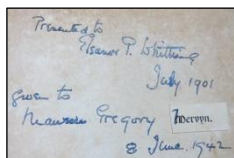 Presented to
Eleanor P. Whittling
July 1901
given to
Maureen Gregory
Mervyn.
8 June. 1942